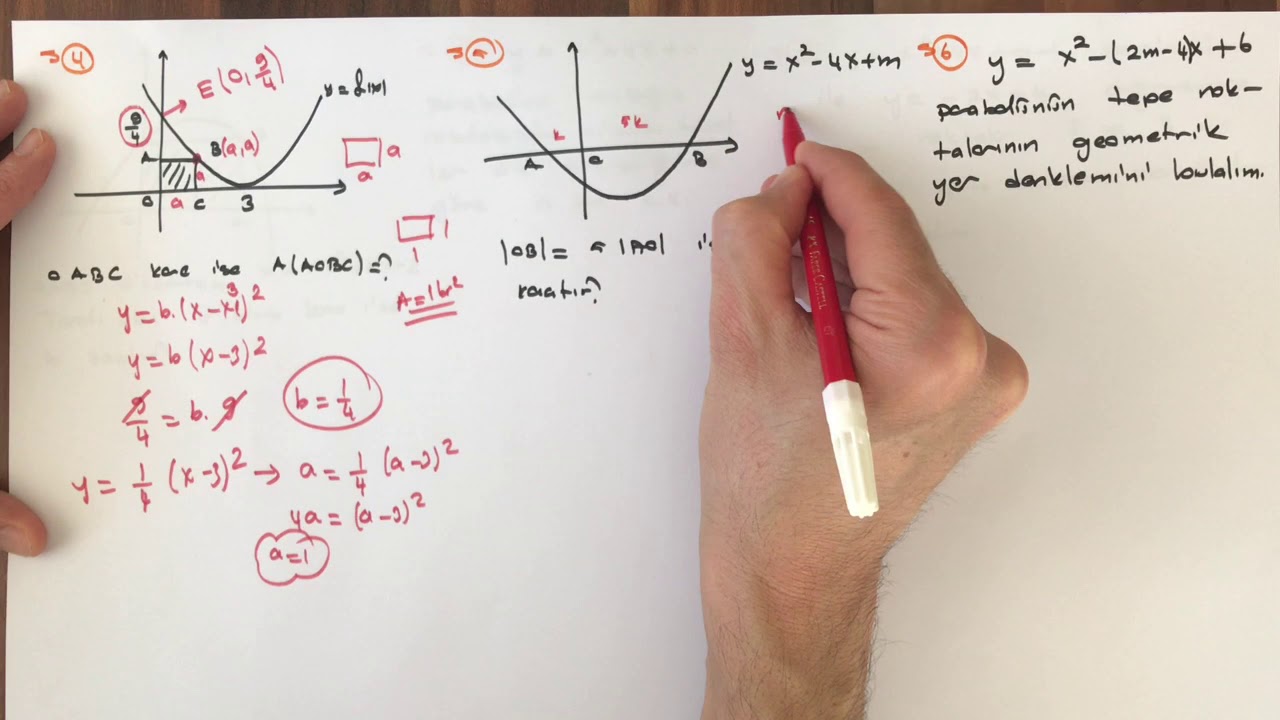 → 4
E(0, 9/4)
y = f(x)
9/4
A
B(a,a)
a
a
a
O
a
C
3
1
1
OABC kare ise A(AOBC)=?
A=1br²
y=b.(x-x1)²
3
y=b(x-3)²
9/4 = b.9
b = 1/4
y = 1/4 (x-3)² → a = 1/4 (a-3)²
4a = (a-3)²
a=1
→ 5
y = x²-4x+m
k
5k
A
o
B
|OB| = 5 |AO|
kaçtır?
→ 6
y = x²-(2m-4)x+6
parabolünün tepe nok-
talarının geometrik
yer denklemini bulalım.